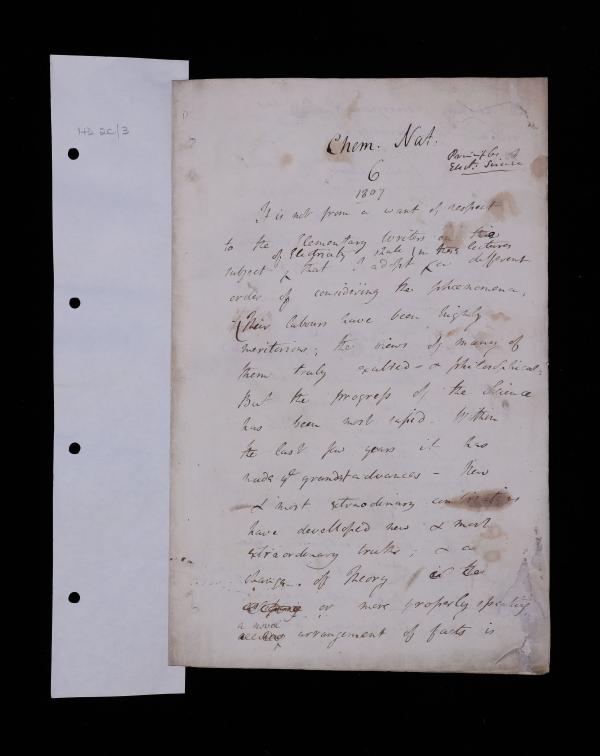 HD 2C/3
Chem. Nat.
Principles of
Elect. Science
6
1807
It is not from a want of respect
to the Elementary Writers on this
of Electricity shall in these lectures
subject that I adopt a different
order of considering the phænomena,
Their labours have been highly
meritorious; the views of many of
them truly exalted - & philosophical.
But the progress of the Science
has been most rapid. Within
the last few years it has
made grandest advances - New
& most extraodinary combinations
have developed new & most
extraordinary truths; & a
change of Theory is the
or more properly speaking
a novel
arrangement of facts is